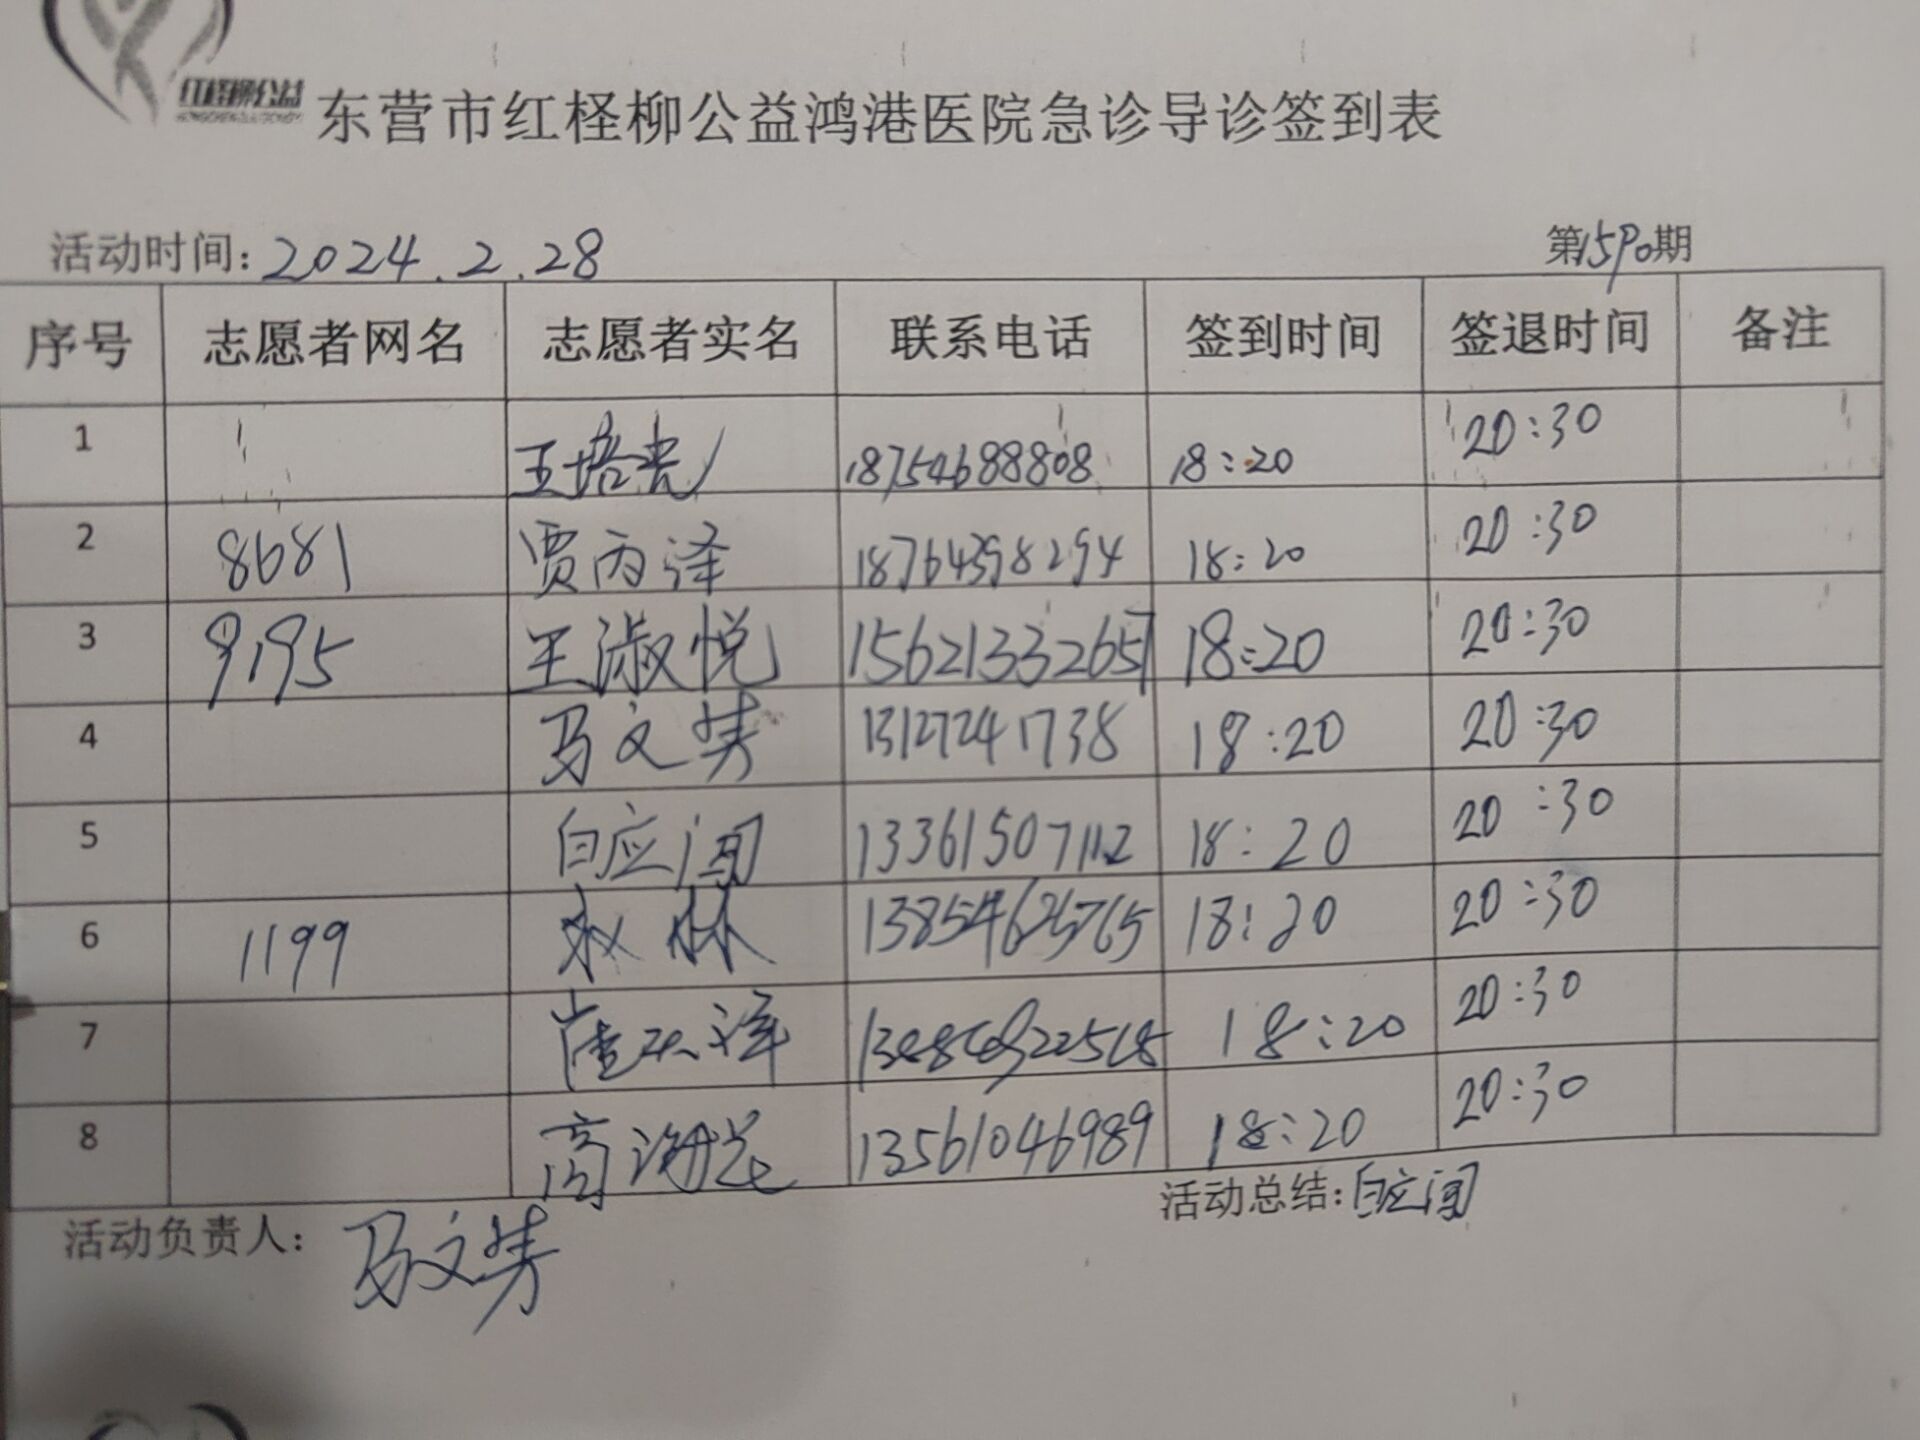 红柽柳公益
东营市红柽柳公益鸿港医院急诊导诊签到表
活动时间：2024.2.28 第1590期
序号 志愿者网名 志愿者实名 联系电话 签到时间 签退时间 备注
1 王培光 18754688808 18:20 20:30
2 8681 贾丙泽 18764398294 18:20 20:30
3 9195 王淑悦 15621332657 18:20 20:30
4 马文芳 13127241738 18:20 20:30
5 白应闯 13361507112 18:20 20:30
6 1199 林 18:20 20:30
7 18:20 20:30
8 高海 13561046989 18:20 20:30
活动负责人：马文芳 活动总结：白应闯